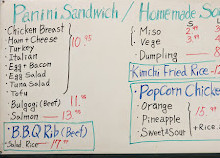 Panini Sandwich / Homemade So
• Chicken Breast
• Ham + Cheese
• Turkey
• Italian
• Egg + Bacon
• Egg Salad
• Tuna Salad
• Tofu
10.95
• Bulgogi (Beef) — 11.
• Salmon — 13.95
• B.B.Q Rib (Beef)
Salad Rice — 17.99
S
• Miso 2.
• Vege 3.
• Dumpling 8
Kimchi Fried Rice -1
Popcorn Chicke
• Orange
• Pineapple
• Sweet & Sour
15.
+ Rice